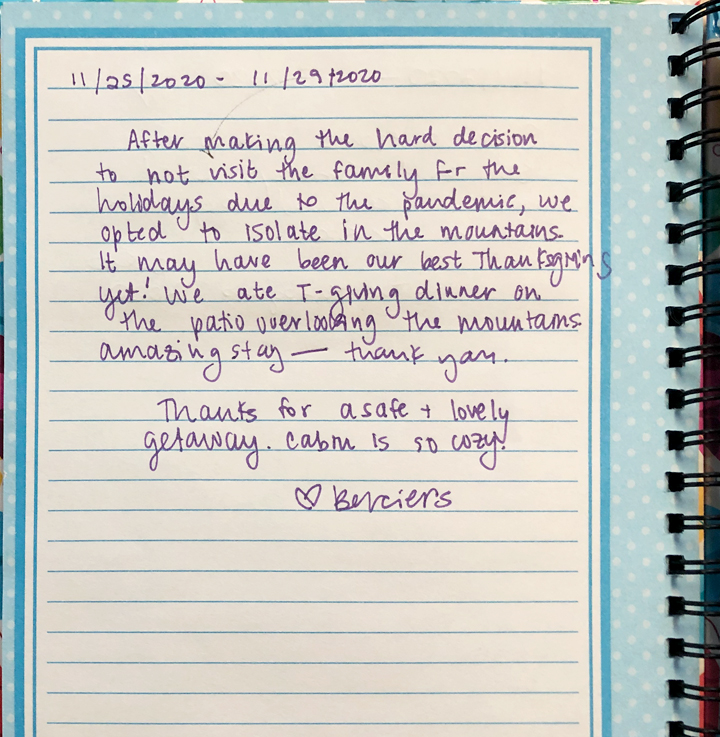 11/25/2020 - 11/29/2020
After making the hard decision
to not visit the family for the
holidays due to the pandemic, we
opted to isolate in the mountains.
It may have been our best Thanksgiving
yet! We ate T-giving dinner on
the patio overlooking the mountains.
amazing stay — thank you.
Thanks for a safe + lovely
getaway. Cabin is so cozy!
♡ Berciers